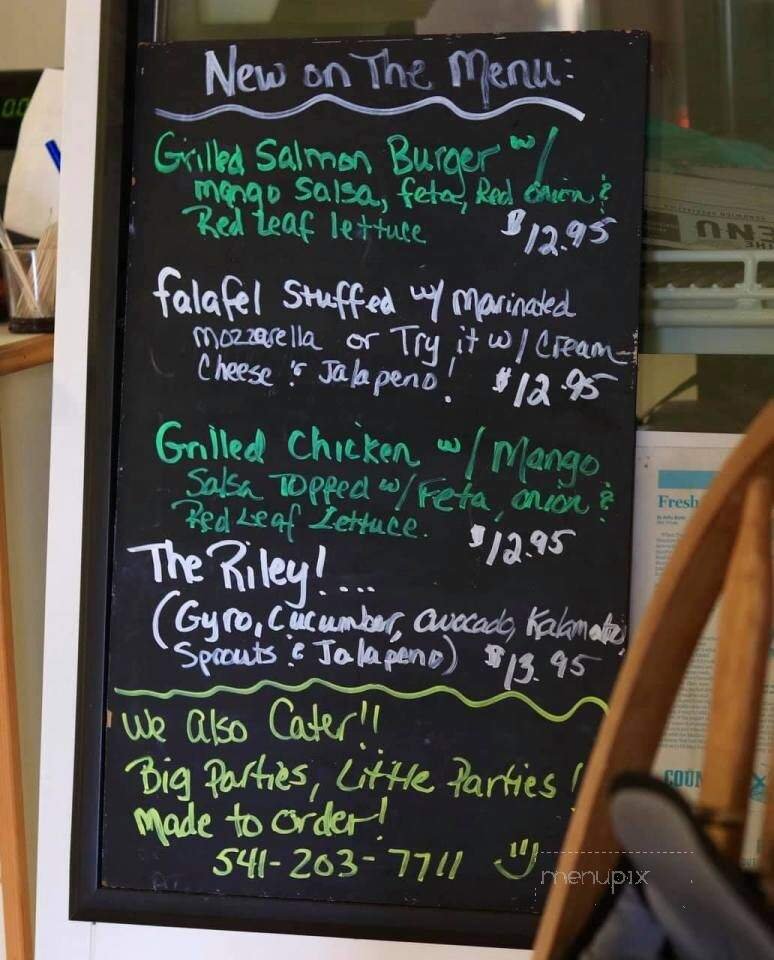 New on The Menu:
Grilled Salmon Burger w/
mango Salsa, feta, Red onion &
Red Leaf lettuce $12.95
falafel Stuffed w/ Marinated
mozzarella or Try it w/ Cream
Cheese & Jalapeno! $12.95
Grilled Chicken w/ Mango
Salsa Topped w/ Feta, onion &
Red Leaf Lettuce. $12.95
The Riley!....
(Gyro, Cucumber, avocado, Kalamata,
Sprouts & Jalapeno) $13.95
We also Cater!!
Big Parties, Little Parties!
Made to order!
541-203-7711
menupix
THE
ENU
Fresh
COUN